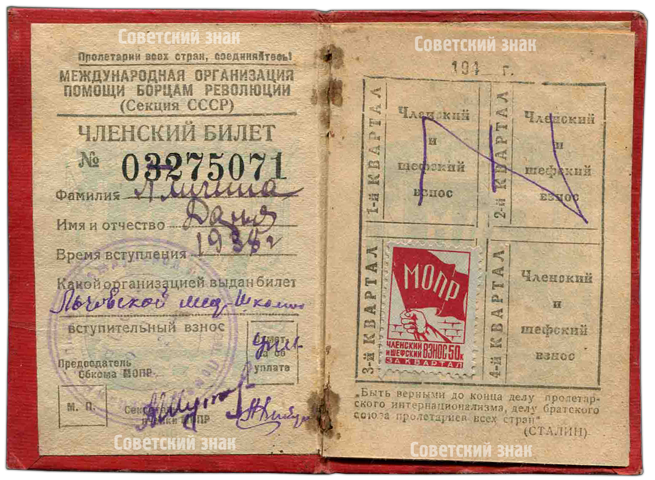 Советский знак
Пролетарии всех стран, соединяйтесь!
МЕЖДУНАРОДНАЯ ОРГАНИЗАЦИЯ
ПОМОЩИ БОРЦАМ РЕВОЛЮЦИИ
(Секция СССР)
ЧЛЕНСКИЙ БИЛЕТ
№ 03275071
Фамилия
Имя и отчество Дарья
Время вступления 1938 г
Какой организацией выдан билет
мед. школы
вступительный взнос
уплате
Председатель
Обкома МОПР
М. П.
МОПР
Советский знак
Советский знак
194 г.
1-й КВАРТАЛ
Членский
и
шефский
взнос
2-й КВАРТАЛ
Членский
и
шефский
взнос
3-й КВАРТАЛ
МОПР
ЧЛЕНСКИЙ
И ШЕФСКИЙ ВЗНОС 50к
ЗА КВАРТАЛ
4-й КВАРТАЛ
Членский
и
шефский
взнос
"Быть верными до конца делу пролетар-
ского интернационализма, делу братского
союза пролетариев всех стран"
(СТАЛИН)
Советский знак